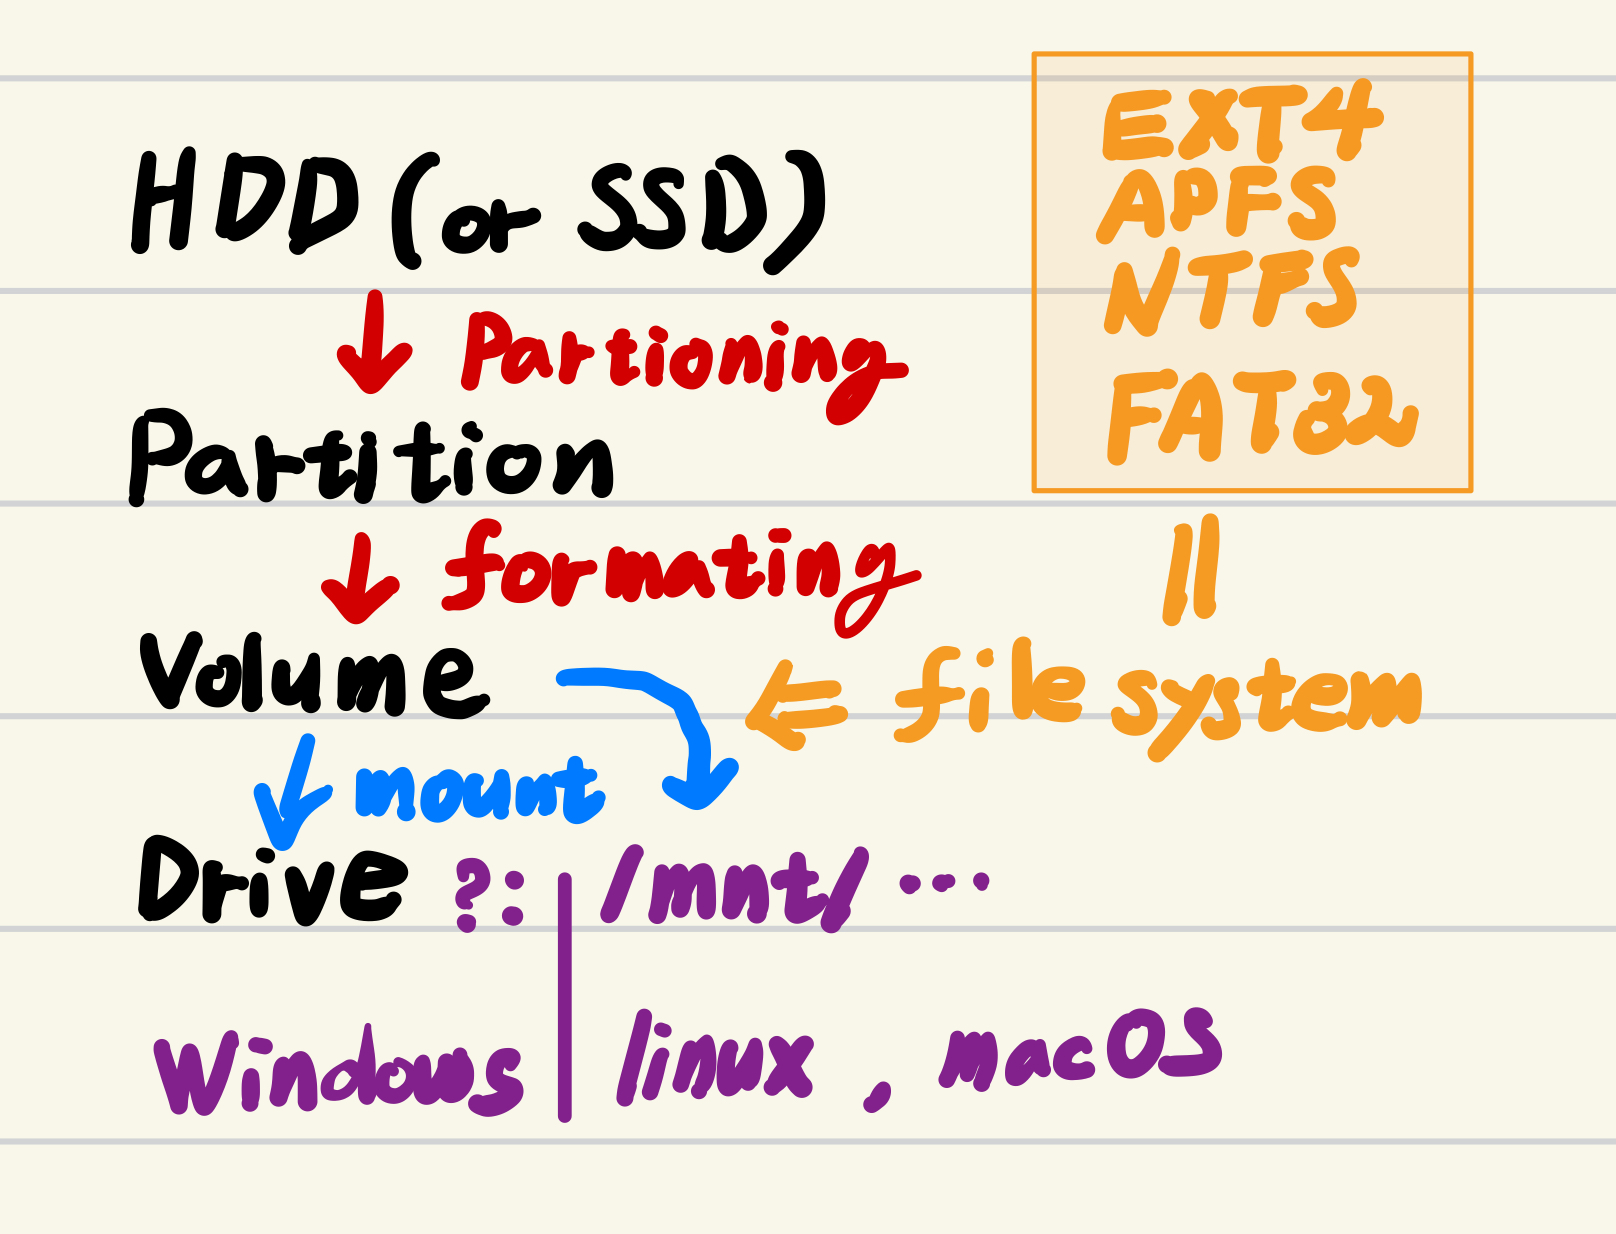 HDD (or SSD)
Partioning
Partition
formating
Volume
mount
Drive ?: /mnt/ ...
Windows linux, macOS
EXT4
APFS
NTFS
FAT32
||
file system